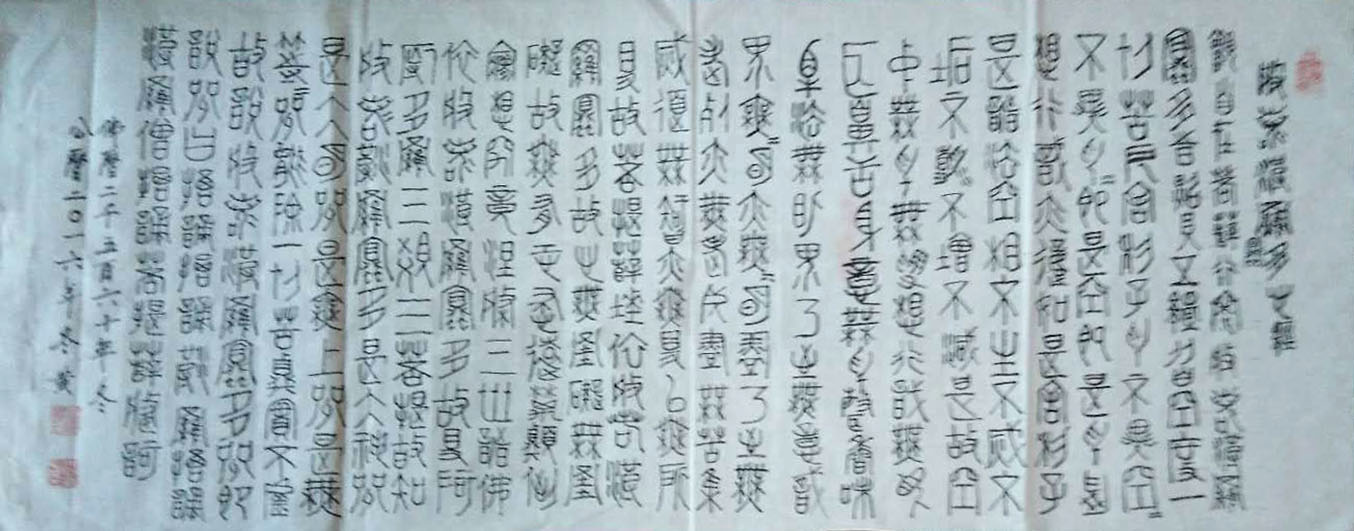 般若波羅蜜多心經
觀自在菩薩行深般若波羅
蜜多時照見五蘊皆空度一
切苦厄舍利子色不異空〃
不異色〃即是空〃即是色受
想行識亦復如是舍利子
是諸法空相不生不滅不
垢不淨不增不減是故空
中無色無受想行識無眼
耳鼻舌身意無色聲香味
觸法無眼界乃至無意識
界無〃明亦無〃明盡乃至無
老死亦無老死盡無苦集
滅道無智亦無得以無所
得故菩提薩埵依般若波
羅蜜多故心無罣礙無罣
礙故無有恐怖遠離顛倒
夢想究竟涅槃三世諸佛
依般若波羅蜜多故得阿
耨多羅三藐三菩提故知
般若波羅蜜多是大神咒
是大明咒是無上咒是無
等〃咒能除一切苦真實不虛
故說般若波羅蜜多咒即
說咒曰揭諦揭諦波羅揭諦
波羅僧揭諦菩提薩婆訶
佛曆二千五百六十年冬
公曆二〇一六年冬